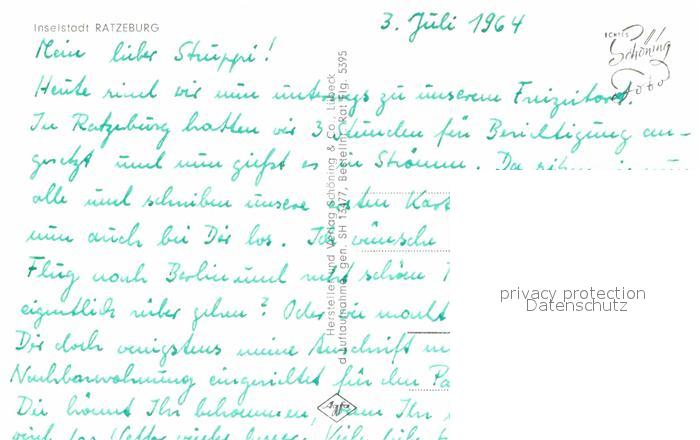 Inselstadt RATZEBURG
3. Juli 1964
ECHTES
Schöning
Foto
Mein lieber Struppi!
Heute sind wir nun unterwegs zu unserem
In Ratzeburg hatten wir 3 Stunden für Besichtigung an-
gesetzt und nun gießt es in Strömen. Da sitzen wir nun
alle und schreiben unsere ersten Kart
nun auch bei Dir los. Ich wünsche
Flug nach Berlin und recht schöne
eigentlich rüber gehen? Oder wie macht
Dir doch wenigstens meine Anschrift
Nachbarwohnung eingerichtet für den Pa
Die könnt Ihr bekommen, wenn Ihr
wird das Wetter wieder besser. Viele liebe
Hersteller und Verlag Schöning & Co., Lübeck
d Luftaufnahme, gen. SH 15177, Bestellnr. Rat Flg. 5395
Agfa
privacy protection
Datenschutz